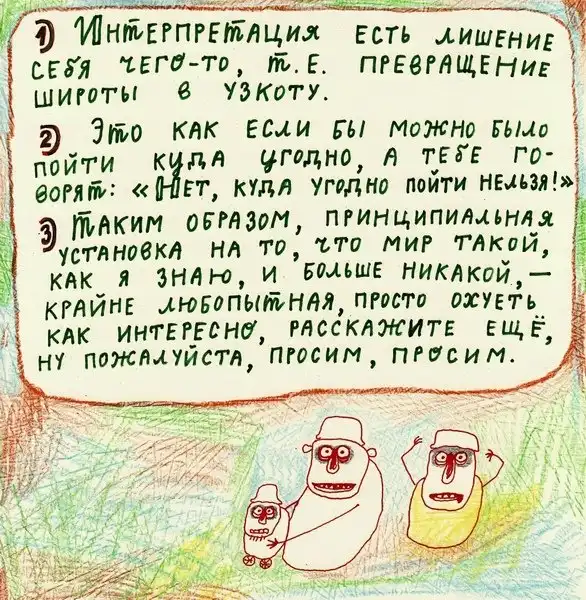 1) Интерпретация есть лишение
себя чего-то, т.е. превращение
широты в узкоту.
2) Это как если бы можно было
пойти куда угодно, а тебе го-
ворят: «Нет, куда угодно пойти нельзя!»
3) Таким образом, принципиальная
установка на то, что мир такой,
как я знаю, и больше никакой, —
крайне любопытная, просто охуеть
как интересно, расскажите ещё,
ну пожалуйста, просим, просим.